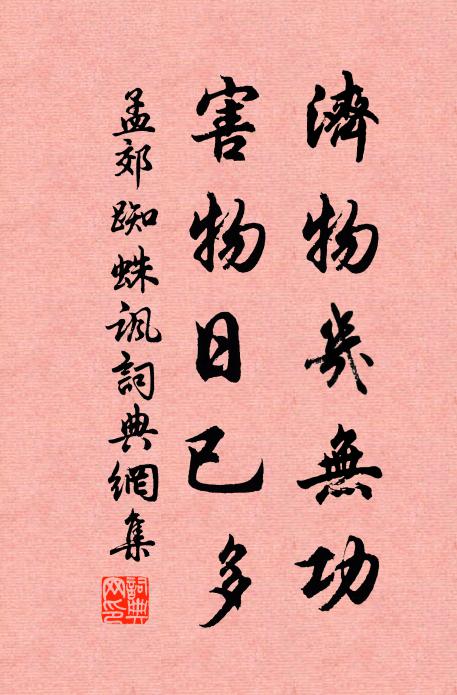 濟物幾無功
害物日已多
孟郊蜘蛛諷詞典網集
詞典網印